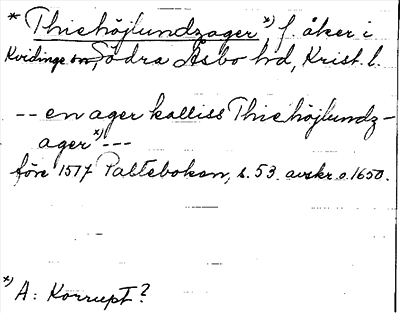 * Thiehöjlundzager *), f. åker i
Kvidinge sn, Södra Åsbo hd, Krist. l.
-- en ager kalliss Thiehöjlundz-
ager *) ---
före 1517 Paltebokan, s. 53. avskr. o. 1650.
*) A: Korrupt?